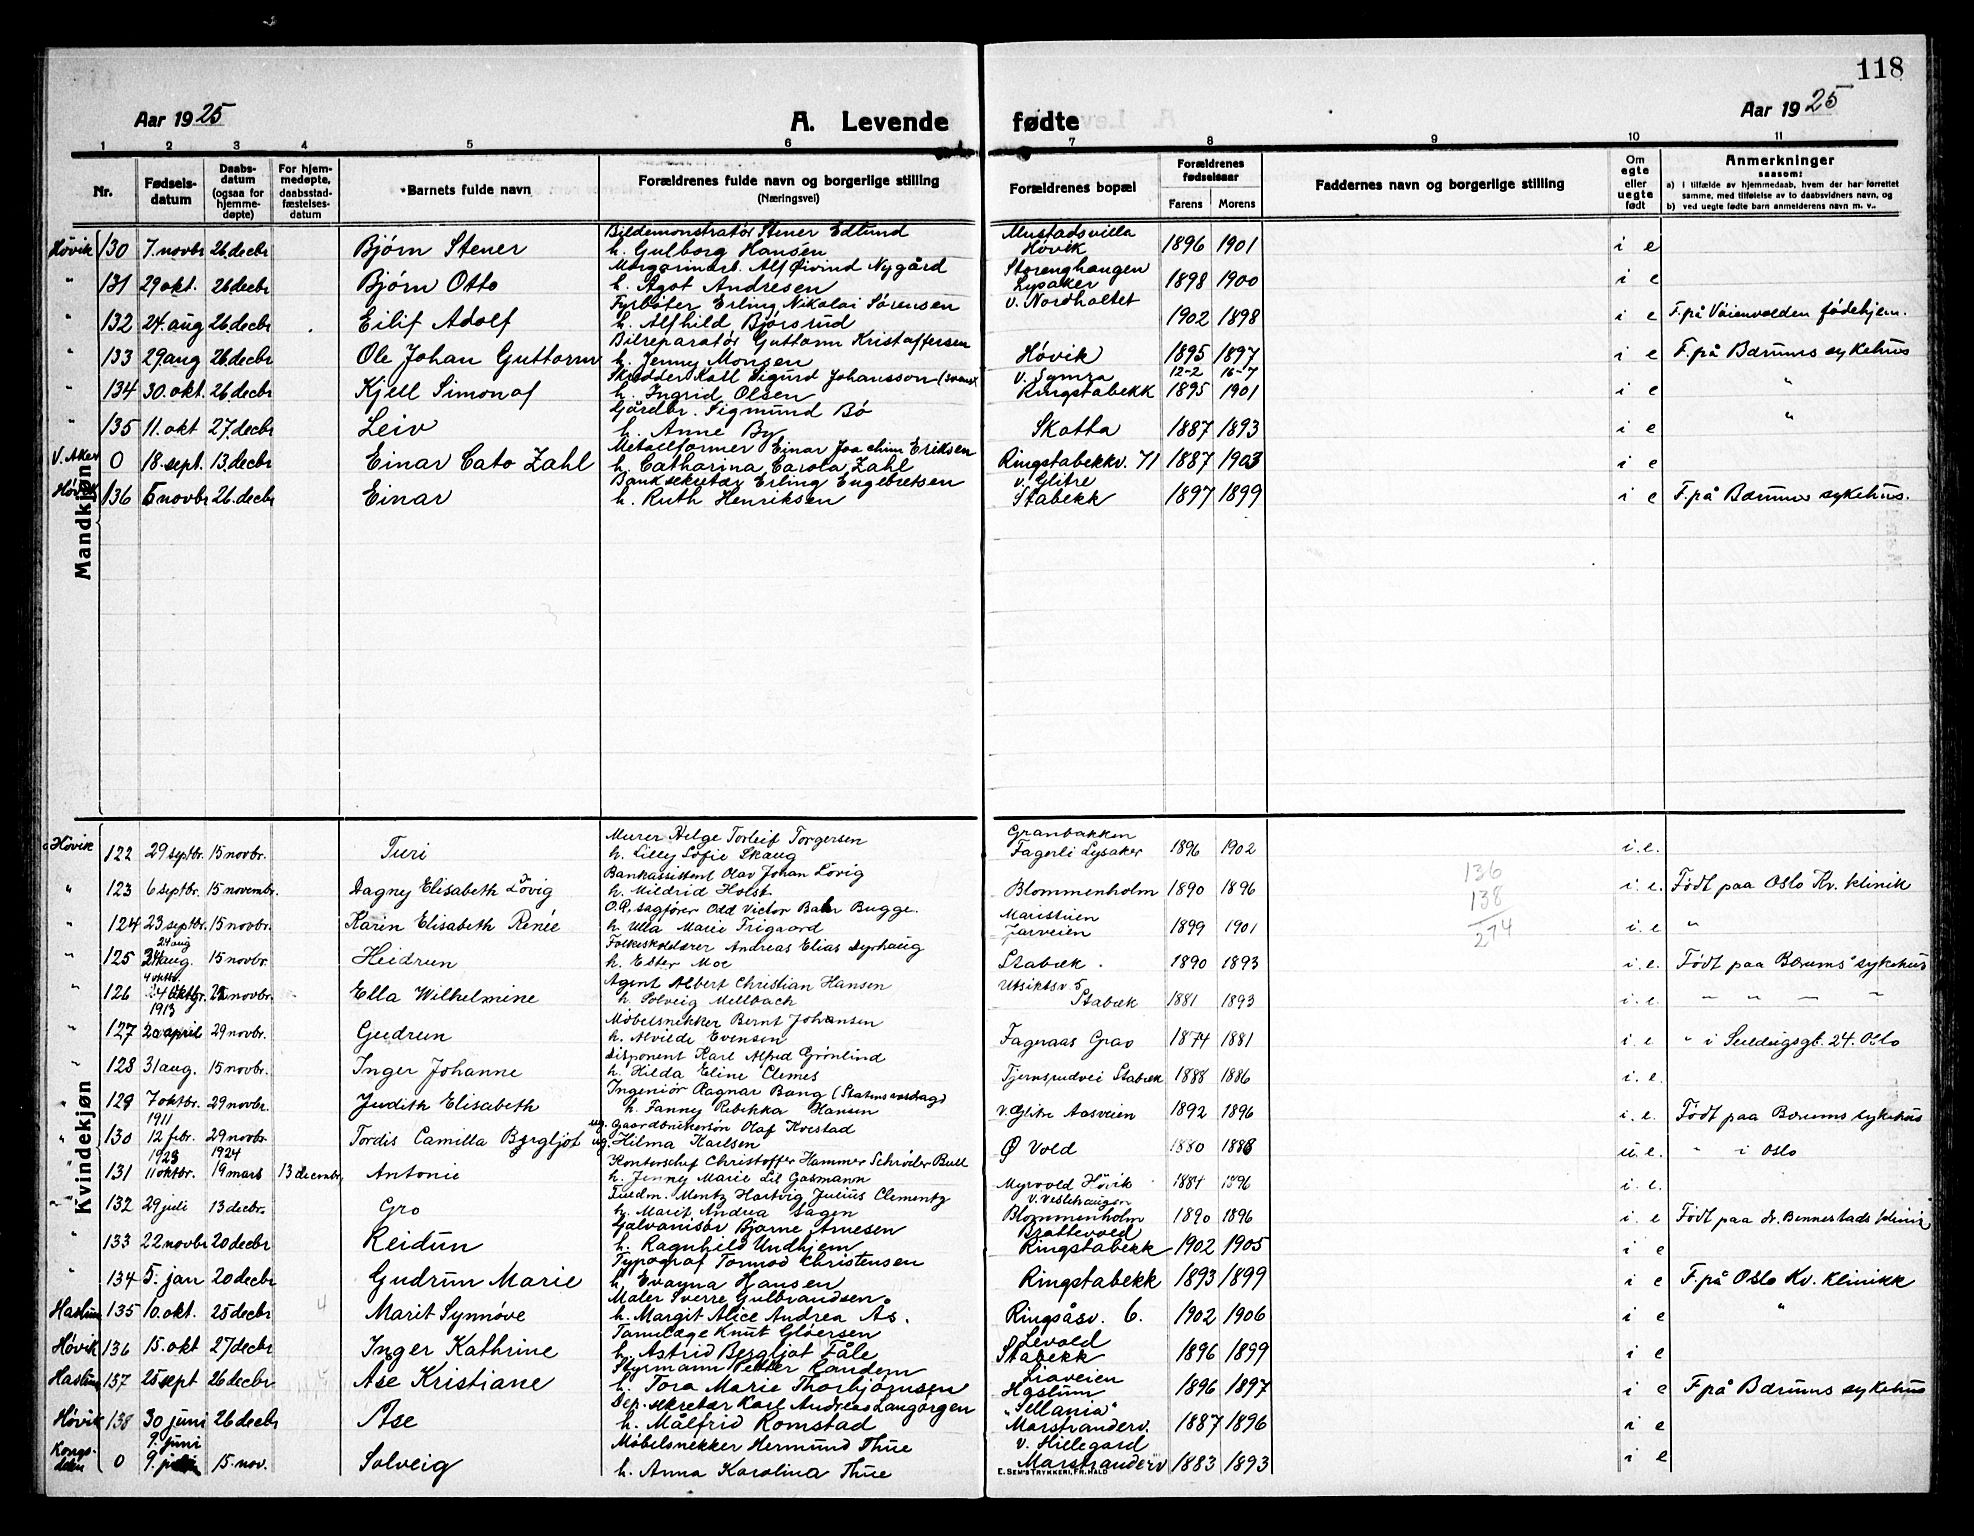 118
Aar 1925 A. Levende fødte Aar 1925
1 2 3 4 5 6 7 8 9 10 11
Nr. Fødsels-datum Daabs-datum (ogsaa for hjemme-døpte) For hjem-medøpte, daabsstad-fæstelses-datum Barnets fulde navn Forældrenes fulde navn og borgerlige stilling (Næringsvei) Forældrenes bopæl Forældrenes fødselsaar Farens Morens Faddernes navn og borgerlige stilling Om egte eller uegte født Anmerkninger saasom:
a) I tilfælde av hjemmedaab, hvem der har forrettet samme, med tilføielse av to daabsvidners navn, og
b) ved uegte fødte barn anmelderens navn m. v..
Mandkjøn
Bildemonstratør Stener Edlund Mustadsvilla
Høvik 130 7. novbr 26 decbr Bjørn Stener h. Gulborg Hansen Høvik 1896 1901 i e
Margarinarb. Alf Øivind Nygård Storenghaugen
" 131 29 okt. 26 decbr Bjørn Otto h. Agot Andresen Lysaker 1898 1900 i e
Fyrbøter Erling Nikolai Sørensen v. Nordholtet
" 132 24. aug 26 decbr Eilif Adolf h. Alfhild Bjørsrud 1902 1898 i e F. på Våienvolden fødehjem.
Bilreparatør Guttorm Kristoffersen
" 133 29 aug 26 decbr Ole Johan Guttorm h. Jenny Monsen Høvik 1895 1897 i e F. på Bærums sykehus
Skrædder Karl Sigurd Johansson (svensk v. Symra 12-2 16-7
" 134 30. okt. 26 decbr Kjell Simonof h. Ingrid Olsen Ringstabekk 1895 1901 i e "
Gårdbr. Sigmund Bö
" 135 11. okt 27. decbr Leiv h. Anne By Skotta 1887 1893 i e "
Metallformer Einar Joachim Eriksen
V. Aker 0 18. sept. 13. decbr Einar Cato Zahl h. Catharina Carola Zahl Ringstabekkv. 71 1887 1903 i e
Banksekretær Erling Engebretsen v. Glitre
Høvik 136 5 novbr 26. decbr Einar h. Ruth Henriksen Stabekk 1897 1899 i e F. på Bærums sykehus.
Kvindekjøn
Murer Helge Torleif Torgersen Granbakken
Høvik 122 29 septbr. 15 novbr. Turi h. Lilly Sofie Skaug Fagerli Lysaker 1896 1902 i. e.
Bankassistent Olav Johan Lövig 136
" 123 6 septbr. 15 novembr. Dagny Elisabeth Lövig h. Mildrid Holst Blommenholm 1890 1896 138 i. e. Født paa Oslo Kv. klinik
O.R. sagfører Odd Victor Bahr Bugge. Maristuen 274
" 124 23 septbr. 15 novbr. Karin Elisabeth Renée h. Ulla Marie Frigaard Jarveien 1899 1901 i. e "
24 aug Folkeskolelærer Andreas Elias Dyrhaug
" 125 24 aug. 15 novbr. Heidrun h. Ester Moe Stabæk. 1890 1893 i. e. Født paa Bærums sykehus
4 oktbr. Agent Albert Christian Hansen Utsiktsv 5
" 126 oktbr. novbr. Ella Wilhelmine h. Solveig Mellbach Stabæk 1881 1893 i. e. " " " "
1913 Møbelsnekker Bernt Johansen
" 127 20 april 29 novbr. Gudrun h. Alvilde Evensen Fageraas Grav 1874 1881 i. e " i 24. Oslo
Disponent Karl Alfred Grönlind
" 128 31 aug. 15 novbr. Inger Johanne h. Hilda Eline Clemes Tjernsrudvei Stabæk 1888 1886 i. e.
Ingeniör Ragnar Bang (Statens vasdrag)
" 129 7 oktbr. 29 novbr. Judith Elisabeth h. Fanny Rebekka Hansen v. Glitre Aasveien 1892 1896 i. e. Født paa Bærums sykehus
1911 ug. Gaardbrukersøn Olaf Kvestad
" 130 12 febr. 29 novbr. Tordis Camilla Bergljot ug. Hilma Karlsen Ø Vold 1880 1888 u. e. " i Oslo
1923 1924 Kontorschef Christoffer Hammer Schröder Bull
" 131 11 oktbr. 19 mars 13 decembr. Antonie h. Jenny Marie Lil Gasmann Myrvold Høvik 1884 1896 i. e.
Fuldm. Mentz Hartvig Julius Clementz v. Veslehaugen
" 132 29 juli 13 decbr. Gro h. Marit Andrea Sagen Blommenholm 1890 1896 i. e Født paa dr. Bennestads klinik
Galvanisør Bjarne Arnesen Brattevold
" 133 22 novbr 20 decbr Reidun h. Ragnhild Undhjem Ringstabekk 1902 1905 i e
Typograf Tormod Christensen
" 134 5. jan 20 decbr Gudrun Marie h. Evanna Hansen Ringstabekk 1893 1899 i e F. på Oslo Kv. klinikk
Maler Sverre Gulbrandsen
Haslum 135 10. okt. 25 decbr 4 Marit Synnøve h. Margit Alice Andrea Ås. Ringsåsv. 6. 1902 1906 i e "
Tannlæge Knut Glöersen Levold
Høvik 136 15. okt 27 decbr Inger Kathrine h. Astrid Bergljot Fåle Stabekk 1896 1899 i e
Styrmann Petter Randem Liaveien
Haslum 137 25 sept 26 decbr Åse Kristiane h. Tora Marie Thorbjörnsen Haslum 1896 1897 i e F. på Bærums sykehus
Dep. sekretær Karl Andreas Langørgen "Sellania"
Høvik 138 30 juni 26 decbr Åse h. Målfrid Romstad Marstranderv. 1887 1896 i e
9. juni Møbelsnekker Hermund Thue v. Hillegard
Kongs- 0 9. 15. nov. Solveig h. Anna Karolina Thue Marstranderv 1883 1893 i e
E. SEM'S TRYKKERI, FR. HALD